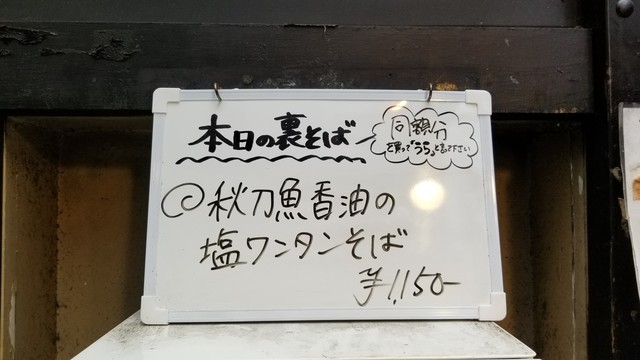 本日の裏そば
同額分
を買って「うら」と言って下さい
@秋刀魚香油の
塩ワンタンそば
¥1,150-